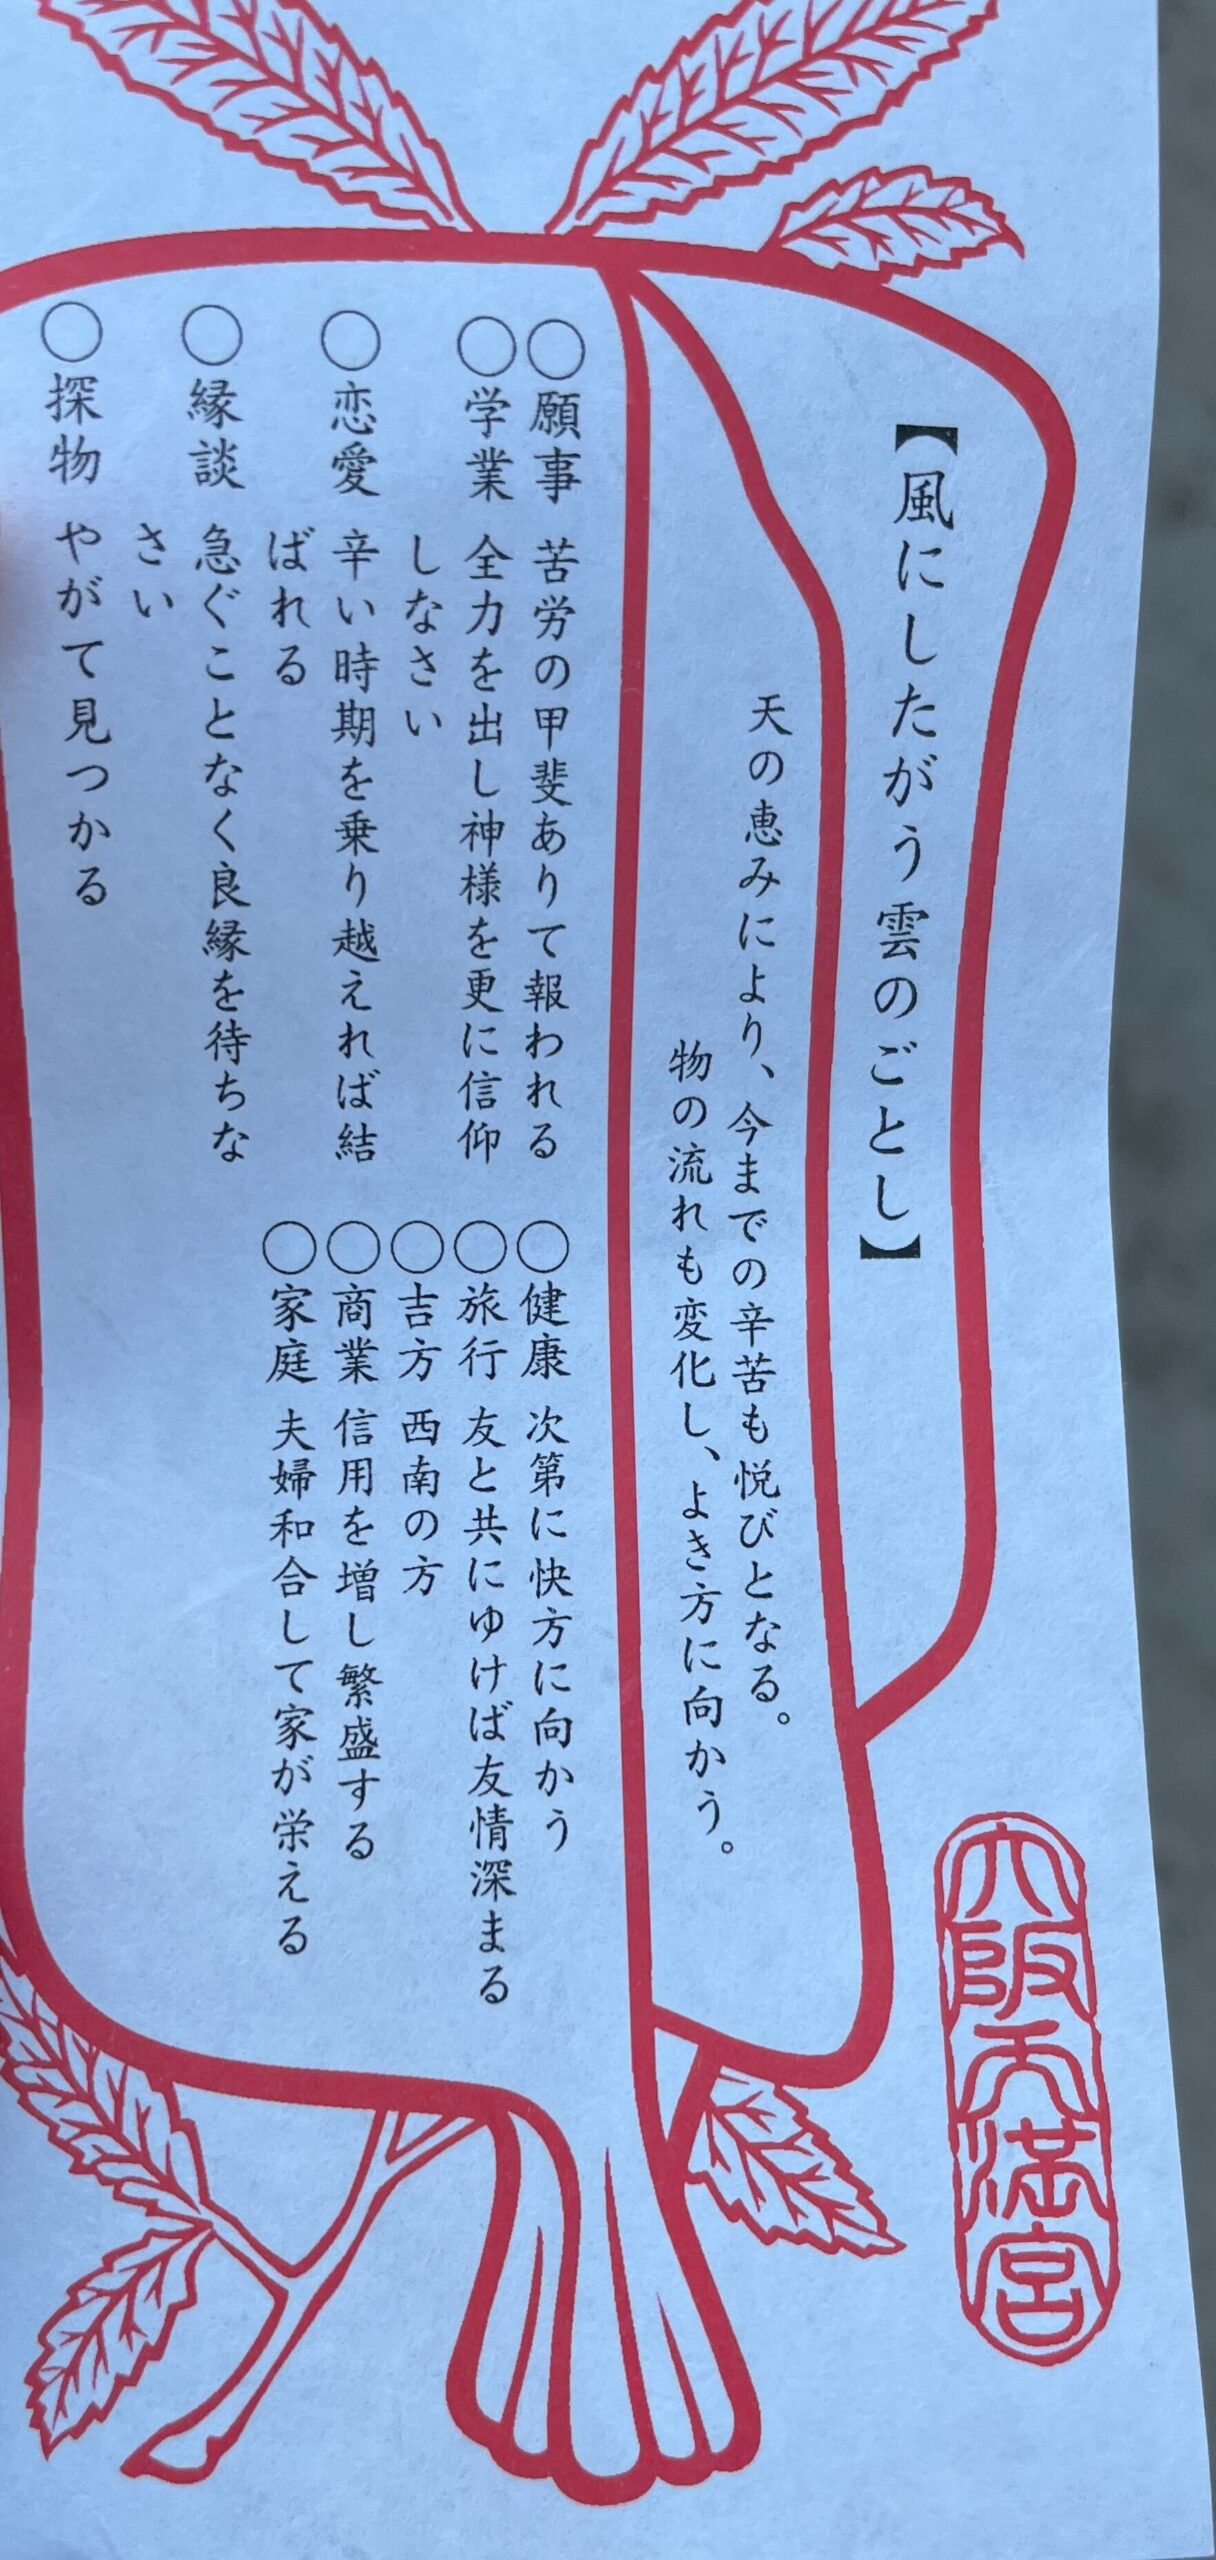 【風にしたがう雲のごとし】
天の恵みにより、今までの辛苦も悦びとなる。
物の流れも変化し、よき方に向かう。
○願事 苦労の甲斐ありて報われる
○学業 全力を出し神様を更に信仰
しなさい
○恋愛 辛い時期を乗り越えれば結
ばれる
○縁談 急ぐことなく良縁を待ちな
さい
○探物 やがて見つかる
○健康 次第に快方に向かう
○旅行 友と共にゆけば友情深まる
○吉方 西南の方
○商業 信用を増し繁盛する
○家庭 夫婦和合して家が栄える
大阪天満宮